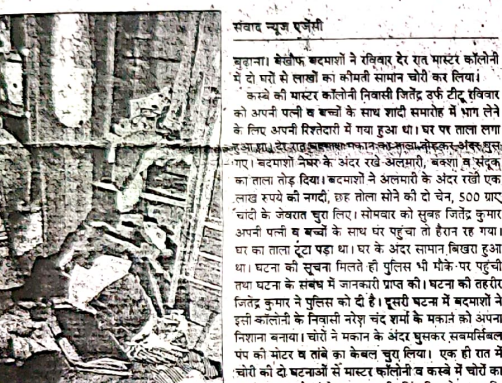 संवाद न्यूज एजेंसी
बुढ़ाना। बेखौफ बदमाशों ने रविवार देर रात मास्टर कॉलोनी
में दो घरों से लाखों का कीमती सामान चोरी कर लिया।
कस्बे की मास्टर कॉलोनी निवासी जितेंद्र उर्फ टीटू रविवार
को अपनी पत्नी व बच्चों के साथ शादी समारोह में भाग लेने
के लिए अपनी रिश्तेदारी में गया हुआ था। घर पर ताला लगा
हुआ था। देर रात बदमाश मकान का ताला तोड़कर अंदर घुस
गए। बदमाशों ने घर के अंदर रखे अलमारी, बक्शा व संदूक
का ताला तोड़ दिया। बदमाशों ने अलमारी के अंदर रखी एक
लाख रुपये की नगदी, छह तोला सोने की दो चेन, 500 ग्राम
चांदी के जेवरात चुरा लिए। सोमवार को सुबह जितेंद्र कुमार
अपनी पत्नी व बच्चों के साथ घर पहुंचा तो हैरान रह गया।
घर का ताला टूटा पड़ा था। घर के अंदर सामान बिखरा हुआ
था। घटना की सूचना मिलते ही पुलिस भी मौके पर पहुंची
तथा घटना के संबंध में जानकारी प्राप्त की। घटना की तहरीर
जितेंद्र कुमार ने पुलिस को दी है। दूसरी घटना में बदमाशों ने
इसी कॉलोनी के निवासी नरेश चंद शर्मा के मकान को अपना
निशाना बनाया। चोरों ने मकान के अंदर घुसकर सबमर्सिबल
पंप की मोटर व तांबे का केबल चुरा लिया। एक ही रात में
चोरी की दो घटनाओं से मास्टर कॉलोनी व कस्बे में चोरों का